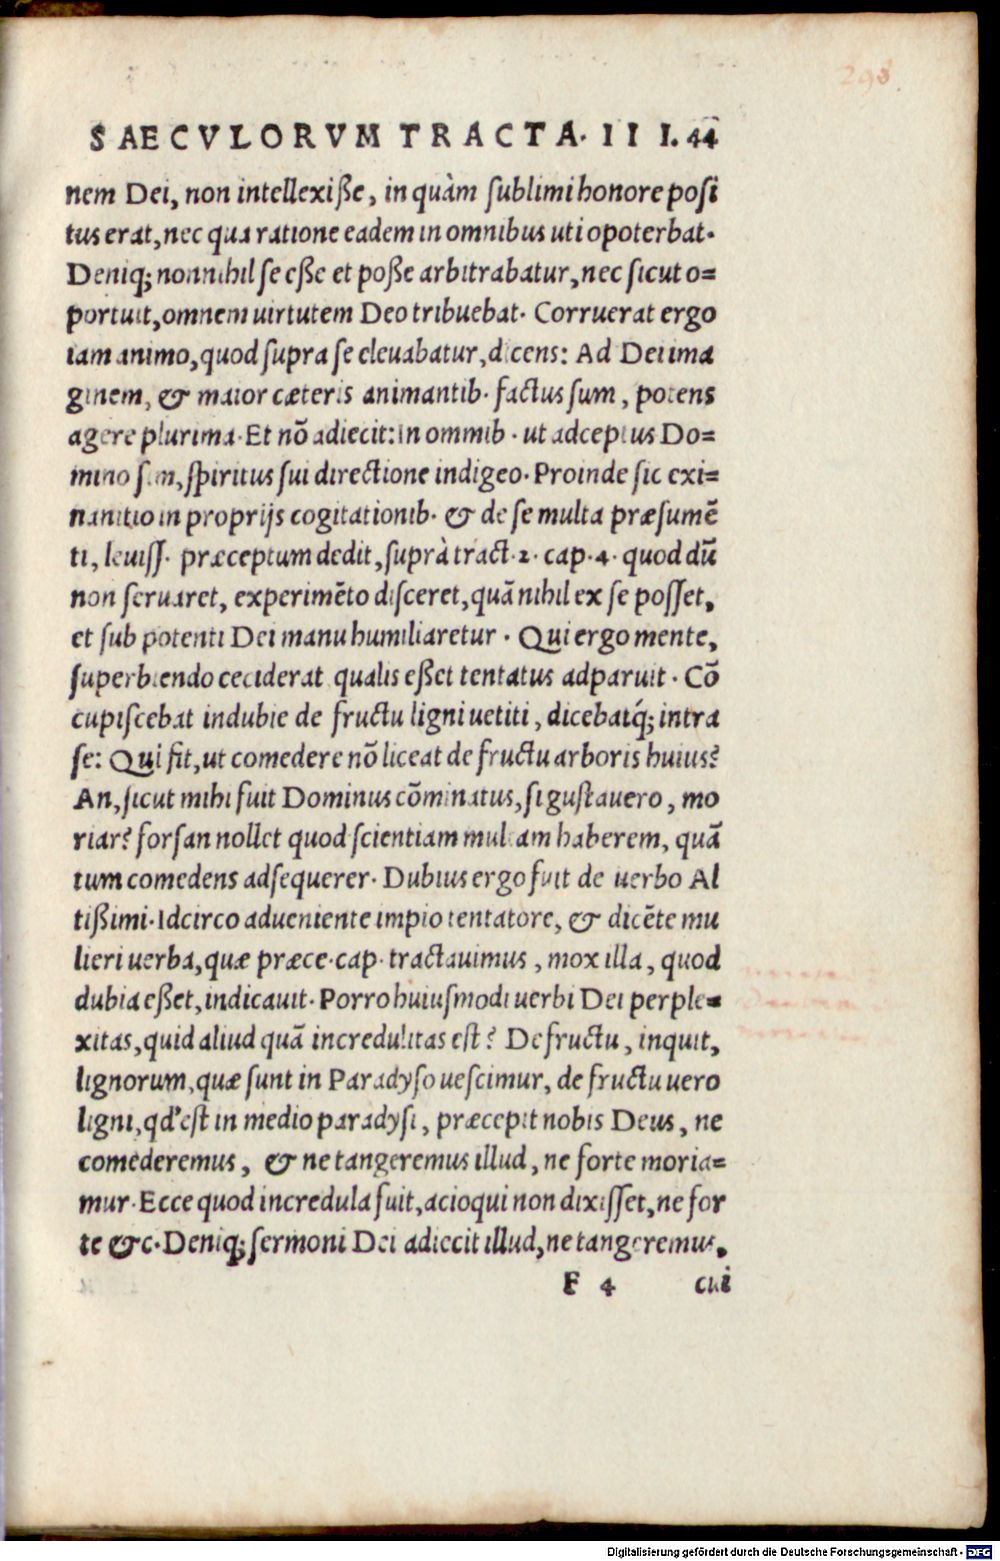 298
SAECVLORVM TRACTA. III. 44
nem Dei, non intellexiße, in quàm ſublimi honore poſi
tus erat, nec qua ratione eadem in omnibus uti opoterbat.
Deniq; nonnihil ſe eße et poße arbitrabatur, nec ſicut o=
portuit, omnem uirtutem Deo tribuebat. Corruerat ergo
iam animo, quod ſupra ſe eleuabatur, dicens: Ad Dei ima
ginem, & maior cæteris animantib. factus ſum, potens
agere plurima. Et nõ adiecit: in omnib. ut adceptus Do=
mino ſum, ſpiritus ſui directione indigeo. Proinde ſic exi=
nanitio in proprijs cogitationib. & de ſe multa præſumẽ
ti, leuiſſ. præceptum dedit, ſuprà tract. 2. cap. 4. quod dũ
non ſeruaret, experimẽto diſceret, quã nihil ex ſe poſſet,
et ſub potenti Dei manu humiliaretur. Qui ergo mente,
ſuperbiendo ceciderat qualis eßet tentatus adparuit. Cõ
cupiſcebat indubie de fructu ligni uetiti, dicebatq́; intra
ſe: Qui fit, ut comedere nõ liceat de fructu arboris huius?
An, ſicut mihi fuit Dominus cõminatus, ſi guſtauero, mo
riar? forſan nollet quod ſcientiam multam haberem, quã
tum comedens adſequerer. Dubius ergo fuit de uerbo Al
tißimi. Idcirco adueniente impio tentatore, & dicẽte mu
lieri uerba, quæ præce. cap. tractauimus, mox illa, quod
dubia eßet, indicauit. Porro huiuſmodi uerbi Dei perple=
xitas, quid aliud quã incredulitas eſt? De fructu, inquit,
lignorum, quæ ſunt in Paradyſo ueſcimur, de fructu uero
ligni, qd' eſt in medio paradyſi, præcepit nobis Deus, ne
comederemus, & ne tangeremus illud, ne forte moria=
mur. Ecce quod incredula fuit, acioqui non dixiſſet, ne for
te &c. Deniq; ſermoni Dei adiecit illud, ne tangeremus,
F 4 cui
Digitalisierung gefördert durch die Deutsche Forschungsgemeinschaft - DFG